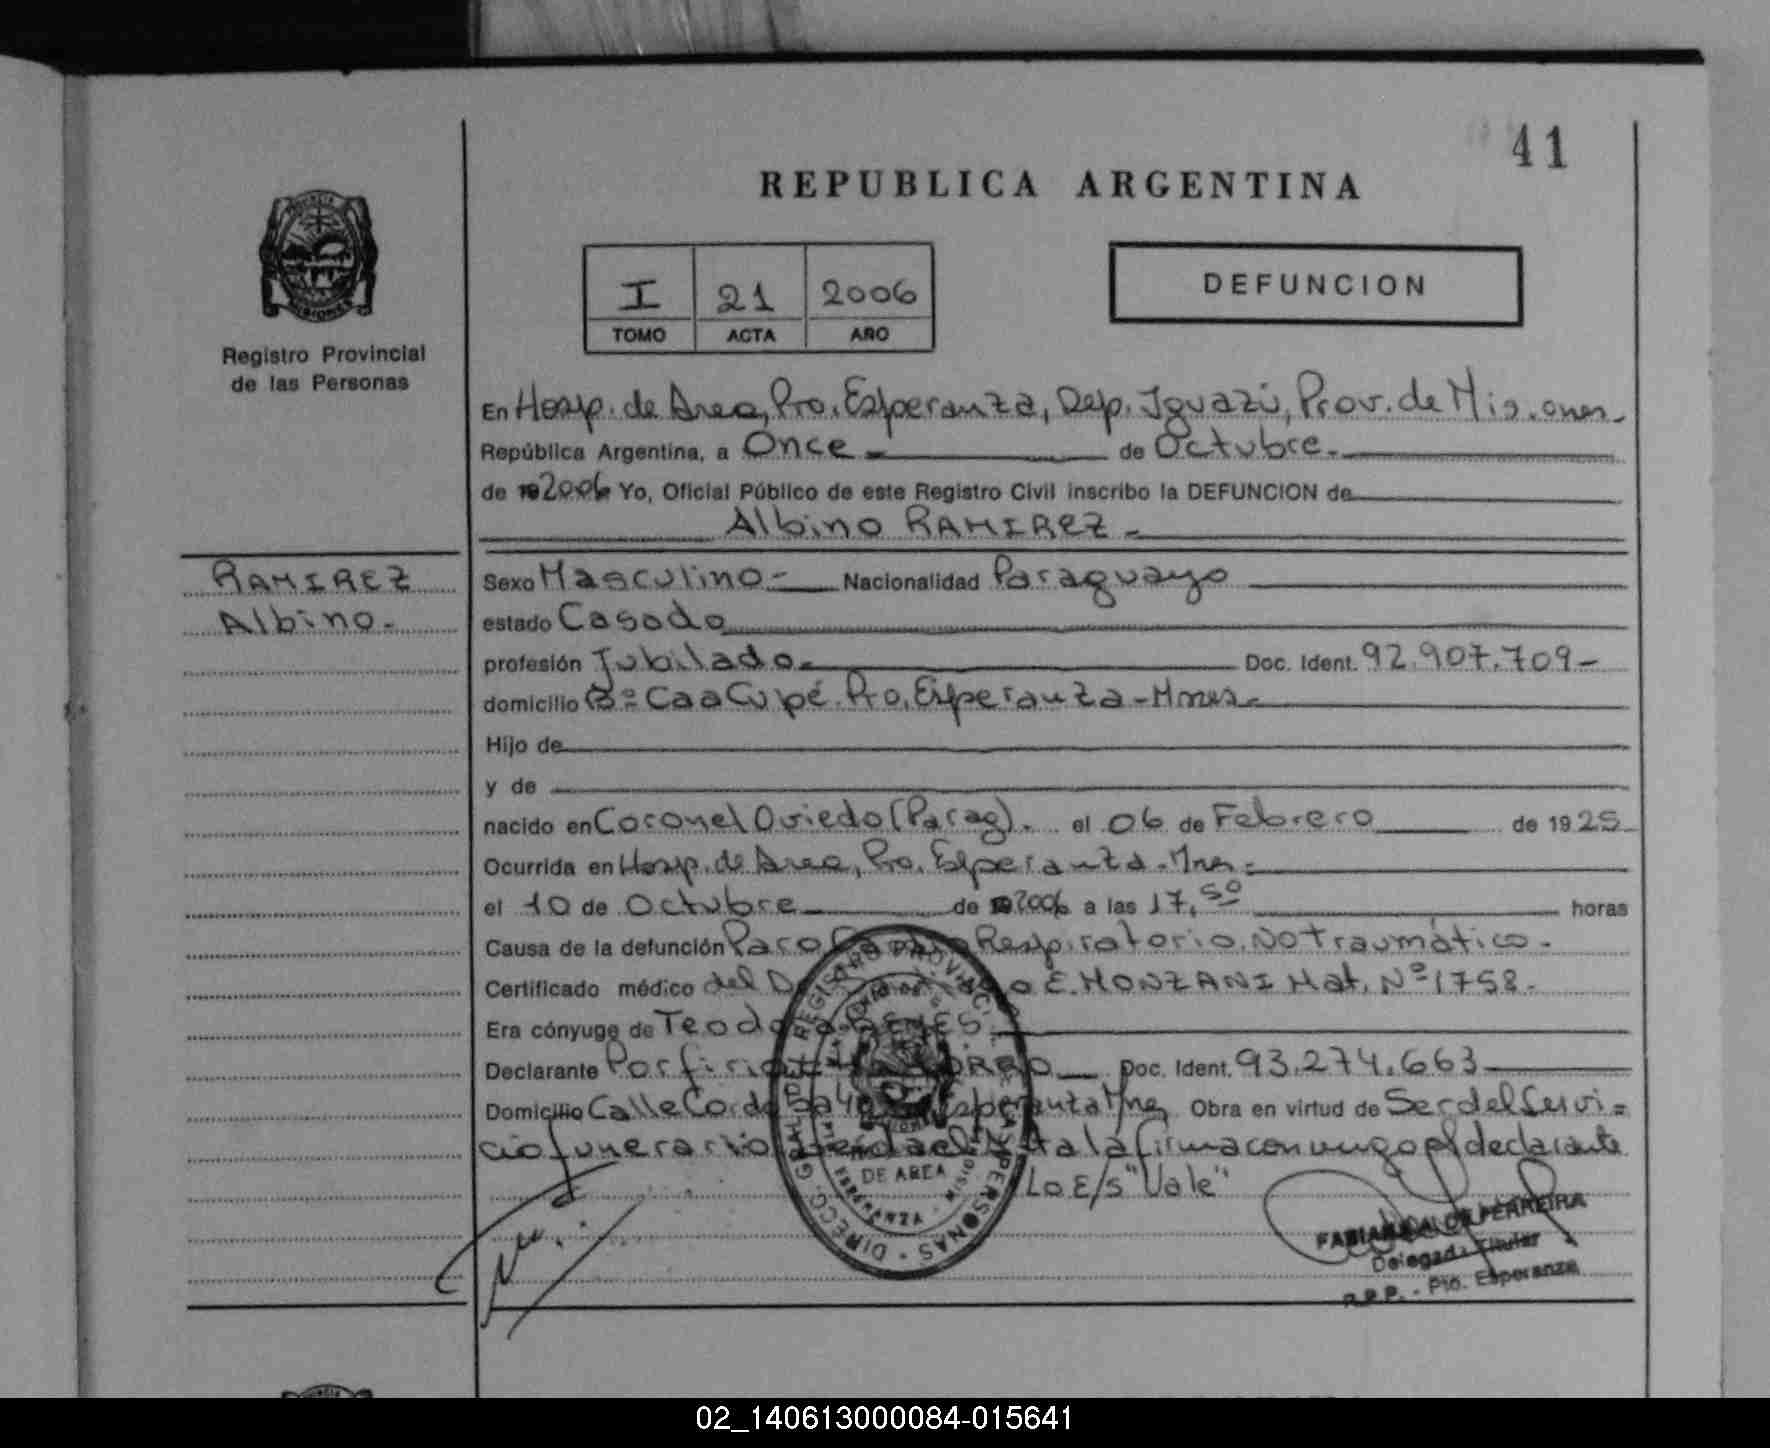 41
REPUBLICA ARGENTINA
PROVINCIA
MISIONES
Registro Provincial
de las Personas
I 21 2006
TOMO ACTA AÑO
DEFUNCION
En Hosp. de Area, Pto. Esperanza, Dep. Iguazú, Prov. de Misiones
República Argentina, a Once de Octubre.
de 19 2006 Yo, Oficial Público de este Registro Civil inscribo la DEFUNCION de
Albino RAMIREZ
RAMIREZ
Albino.
Sexo Masculino Nacionalidad Paraguayo
estado Casado
profesión Jubilado Doc. Ident. 92.907.709
domicilio Bº Caacupé Pto. Esperanza - Mnes.
Hijo de
y de
nacido en Coronel Oviedo (Parag). el 06 de Febrero de 1925
Ocurrida en Hosp. de Area, Pto. Esperanza - Mnes.
el 10 de Octubre de 19 2006 a las 17,50 horas
Causa de la defunción Paro Cardio Respiratorio, No Traumático.
Certificado médico del E. MONZANI Mat. Nº 1758.
Era cónyuge de
Declarante Porfirio Doc. Ident. 93.274.663
Domicilio Calle Esperanza Mnes Obra en virtud de Ser del Servi=
cio funerario la firma con migo el declarante
Lo E/s "Vale"
DIRECC. GRAL. DEL REGISTRO PROVINCIAL DE LAS PERSONAS
DE AREA
ESPERANZA
FERREIRA
Delegada Titular
R.P.P. - Pto. Esperanza
02_140613000084-015641